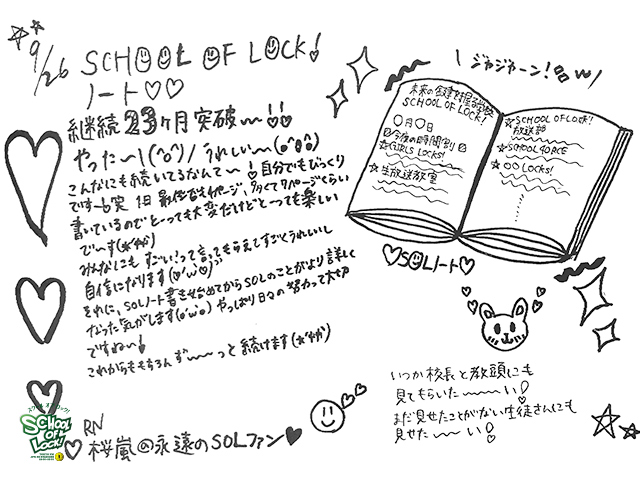 9/26
SCHOOL OF LOCK!
ノート♡♡
継続23ヶ月突破〜!!
やった〜\(^o^)/うれしい〜(o^o^o)
こんなにも続いてるなんて〜!自分でもびっくり
です 実 1日 最低でも4ページ、多くて7ページくらい
書いているのでとーっても大変だけどとーっても楽しい
で〜す(*^^*)
みんなにもすごい!って言ってもらえてすごくうれしいし
自信になります(o'ω'o)
それに、SOLノート書き始めてからSOLのことがより詳しく
なった気がします(o'ω'o)やっぱり日々の努力って大切
ですね〜!
これからももちろんず〜〜っと続けます(*^^*)
RN
♡桜嵐@永遠のSOLファン♥
SCHOOL OF LOCK!
\ジャジャーン!w/
未来の鍵を握る学校
SCHOOL OF LOCK!
○月○日
今夜の時間割
☆GIRLS LOCKS!
☆生放送教室
☆SCHOOL OF LOCK!
放送部
☆SCHOOL FORCE
☆○○LOCKS!
♡SOLノート♡
いつか校長と教頭にも
見てもらいた〜〜い!
まだ見せたことがない生徒さんにも
見せた〜〜い!